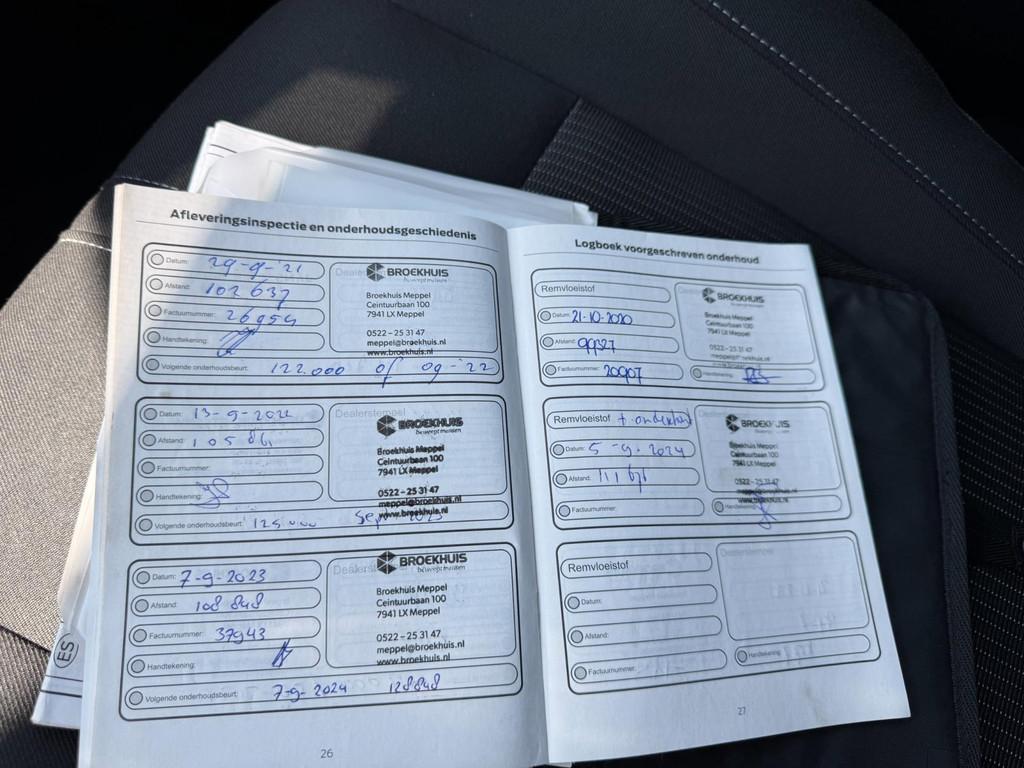 Afleveringsinspectie en onderhoudsgeschiedenis
Datum: 29-9-'21
Afstand: 102 637
Factuurnummer: 26954
Handtekening:
Volgende onderhoudsbeurt: 122.000 of 09-'22
BROEKHUIS
beweegt mensen
Broekhuis Meppel
Ceintuurbaan 100
7941 LX Meppel
0522 – 25 31 47
meppel@broekhuis.nl
www.broekhuis.nl
Datum: 13-9-2022
Afstand:
Factuurnummer:
Handtekening:
Volgende onderhoudsbeurt: Sept 2023
Dealerstempel
BROEKHUIS
beweegt mensen
Broekhuis Meppel
Ceintuurbaan 100
7941 LX Meppel
0522 – 25 31 47
meppel@broekhuis.nl
www.broekhuis.nl
Datum: 7-9-2023
Afstand: 108 848
Factuurnummer: 37943
Handtekening:
Volgende onderhoudsbeurt: 7-9-2024 128848
BROEKHUIS
beweegt mensen
Broekhuis Meppel
Ceintuurbaan 100
7941 LX Meppel
0522 – 25 31 47
meppel@broekhuis.nl
www.broekhuis.nl
26
ES
Logboek voorgeschreven onderhoud
Remvloeistof
Datum: 21-10-2020
Afstand: 99327
Factuurnummer: 20907
BROEKHUIS
Broekhuis Meppel
Ceintuurbaan 100
7941 LX Meppel
0522 – 25 31 47
meppel@broekhuis.nl
Handtekening:
Remvloeistof + onderhoud
Datum: 5-9-2024
Afstand: 111 676
Factuurnummer:
BROEKHUIS
beweegt mensen
Broekhuis Meppel
Ceintuurbaan 100
7941 LX Meppel
0522 – 25 31 47
Handtekening:
Remvloeistof
Datum:
Afstand:
Factuurnummer:
Dealerstempel
Handtekening:
27